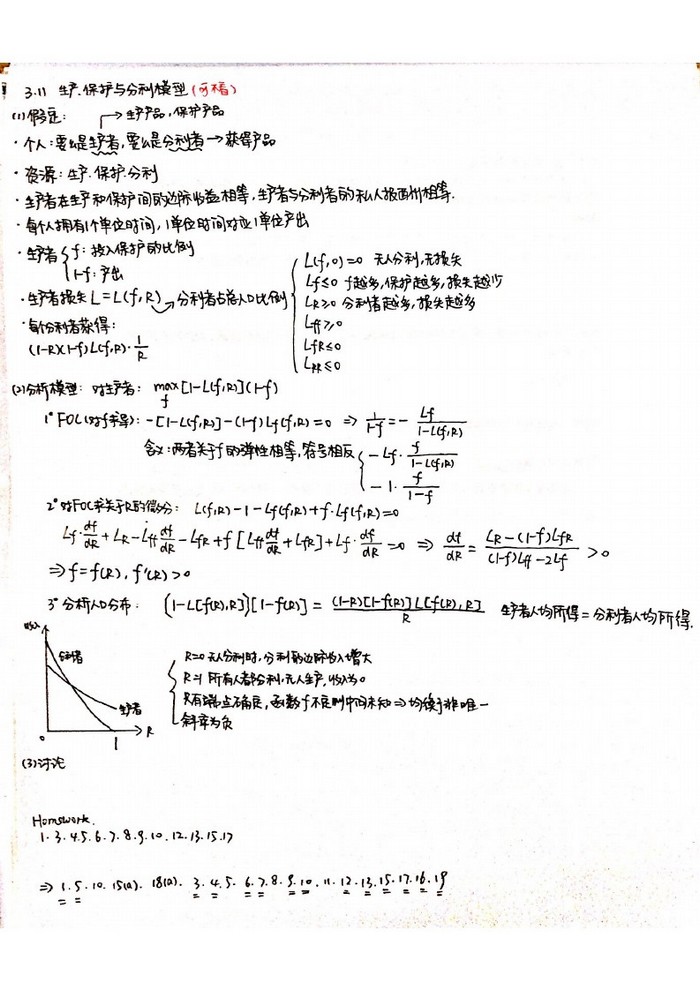 3.11 生产、保护与分利模型(可不看)
(1)假定： → 生产产品，保护产品
·个人：要么是生产者，要么是分利者→获得产品
·资源：生产、保护、分利
·生产者在生产和保护间的边际收益相等，生产者与分利者的私人报酬相等.
·每个人拥有1个单位时间，1单位时间对应1单位产出
·生产者 { f：投入保护的比例
1-f：产出
·生产者损失L=L(f,R) → 分利者占总人口比例
L(f,0)=0 无人分利，无损失
Lf≤0 f越多，保护越多，损失越少
LR≥0 分利者越多，损失越多
Lff≥0
LfR≤0
LRR≤0
·每个分利者获得：
(1-R)(1-f)L(f,R)·1/R
(2)分析模型：对生产者： max f [1-L(f,R)](1-f)
1° FOC(对f求导)：-[1-L(f,R)]-(1-f)Lf(f,R)=0 ⇒ 1/(1-f)=- Lf/(1-L(f,R))
含义：两者关于f的弹性相等，符号相反 { -Lf· f/(1-L(f,R))
-1· f/(1-f)
2° 对FOC求关于R的微分： L(f,R)-1-Lf(f,R)+f·Lf(f,R)=0
Lf·df/dR+LR-Lff df/dR-LfR+f[Lff df/dR+LfR]+Lf·df/dR=0 ⇒ df/dR= (LR-(1-f)LfR)/((1-f)Lff-2Lf) >0
⇒f=f(R)，f'(R)>0
3° 分析人口分布： {1-L[f(R),R]}[1-f(R)]= (1-R)[1-f(R)]L[f(R),R]/R 生产者人均所得=分利者人均所得.
收入
分利者
生产者
0 1 R
R=0 无人分利时，分利的边际收入增大
R=1 所有人都分利，无人生产，收入为0
R有端点确定，函数f不定则中间未知⇒均衡非唯一
斜率为负
(3)讨论
Homework.
1.3.4.5.6.7.8.9.10.12.13.15.17
⇒ 1.5.10.15(a).18(a). 3.4.5.6.7.8.9.10.11.12.13.15.17.16.19